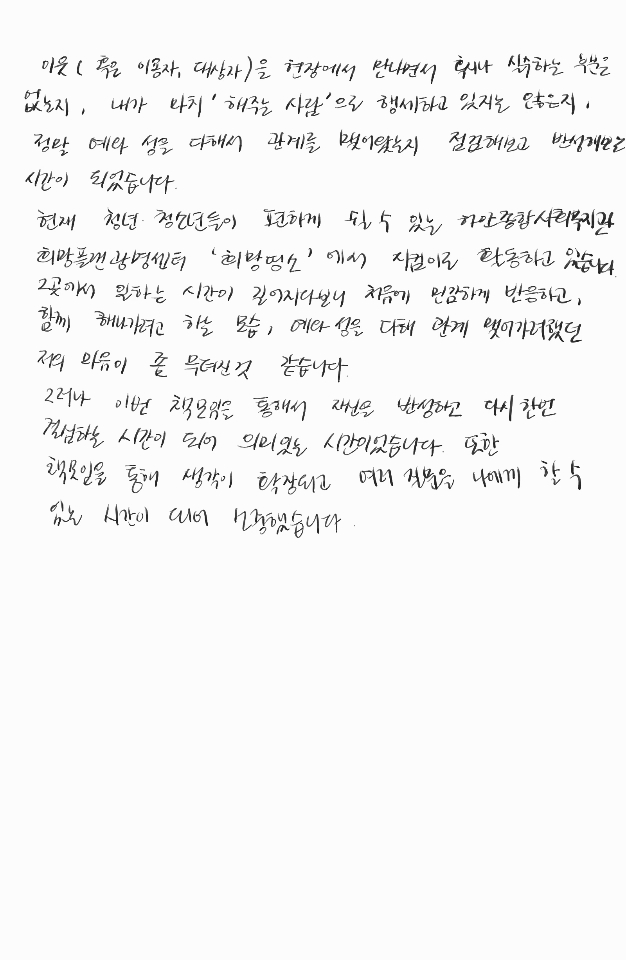 이웃( 혹은 이용자, 대상자)을 현장에서 만나면서 혹시나 실수하는 부분은
없는지, 내가 마치 '해주는 사람'으로 행세하고 있지는 않은지,
정말 예와 성을 다해서 관계를 맺어왔는지 점검해보고 반성해보는
시간이 되었습니다.
현재 청년·청소년들이 편하게 쉴 수 있는 하안종합사회복지관
희망플랜광명센터 '희망띵소'에서 지킴이로 활동하고 있습니다.
그곳에서 일하는 시간이 길어지다보니 처음에 민감하게 반응하고,
함께 해나가려고 하는 모습, 예와 성을 다해 관계 맺어가려했던
저의 마음이 좀 무뎌진것 같습니다.
그러나 이번 책모임을 통해서 자신을 반성하고 다시한번
결심하는 시간이 되어 의미있는 시간이었습니다. 또한
책모임을 통해 생각이 확장되고 여러 질문을 나에게 할 수
있는 시간이 되어 신기했습니다.